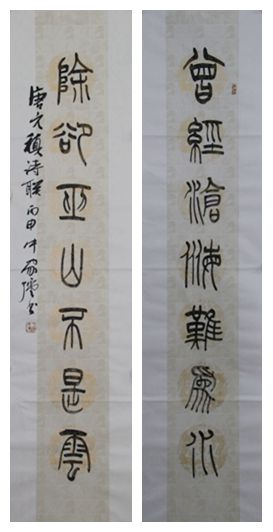 曾經滄海難為水
除卻巫山不是雲
唐元稹詩聯丙申